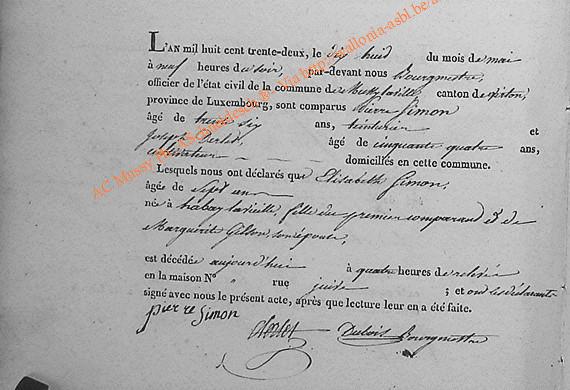 L'AN mil huit cent trente-deux, le dix huit du mois de mai
à neuf heures du soir, par-devant nous Bourgmestre,
officier de l'état civil de la commune de Mussy la ville, canton de Virton,
province de Luxembourg, sont comparus Pierre Simon
âgé de trente six ans, teinturier et
Joseph Perlot, âgé de cinquante quatre ans,
cultivateur domiciliés en cette commune.
Lesquels nous ont déclarés que Elisabeth Simon,
âgée de sept ans
née à habay la vieille, fille du premier comparant & de
Marguerite Gilson, son épouse,
est décédée aujourd'hui à quatre heures de relevée
en la maison N° " rue ; et ont les déclarants
signé avec nous le présent acte, après que lecture leur en a été faite.
pierre Simon
Dubois Bourgmestre
AC Mussy Via http://wallonia-asbl.be/a